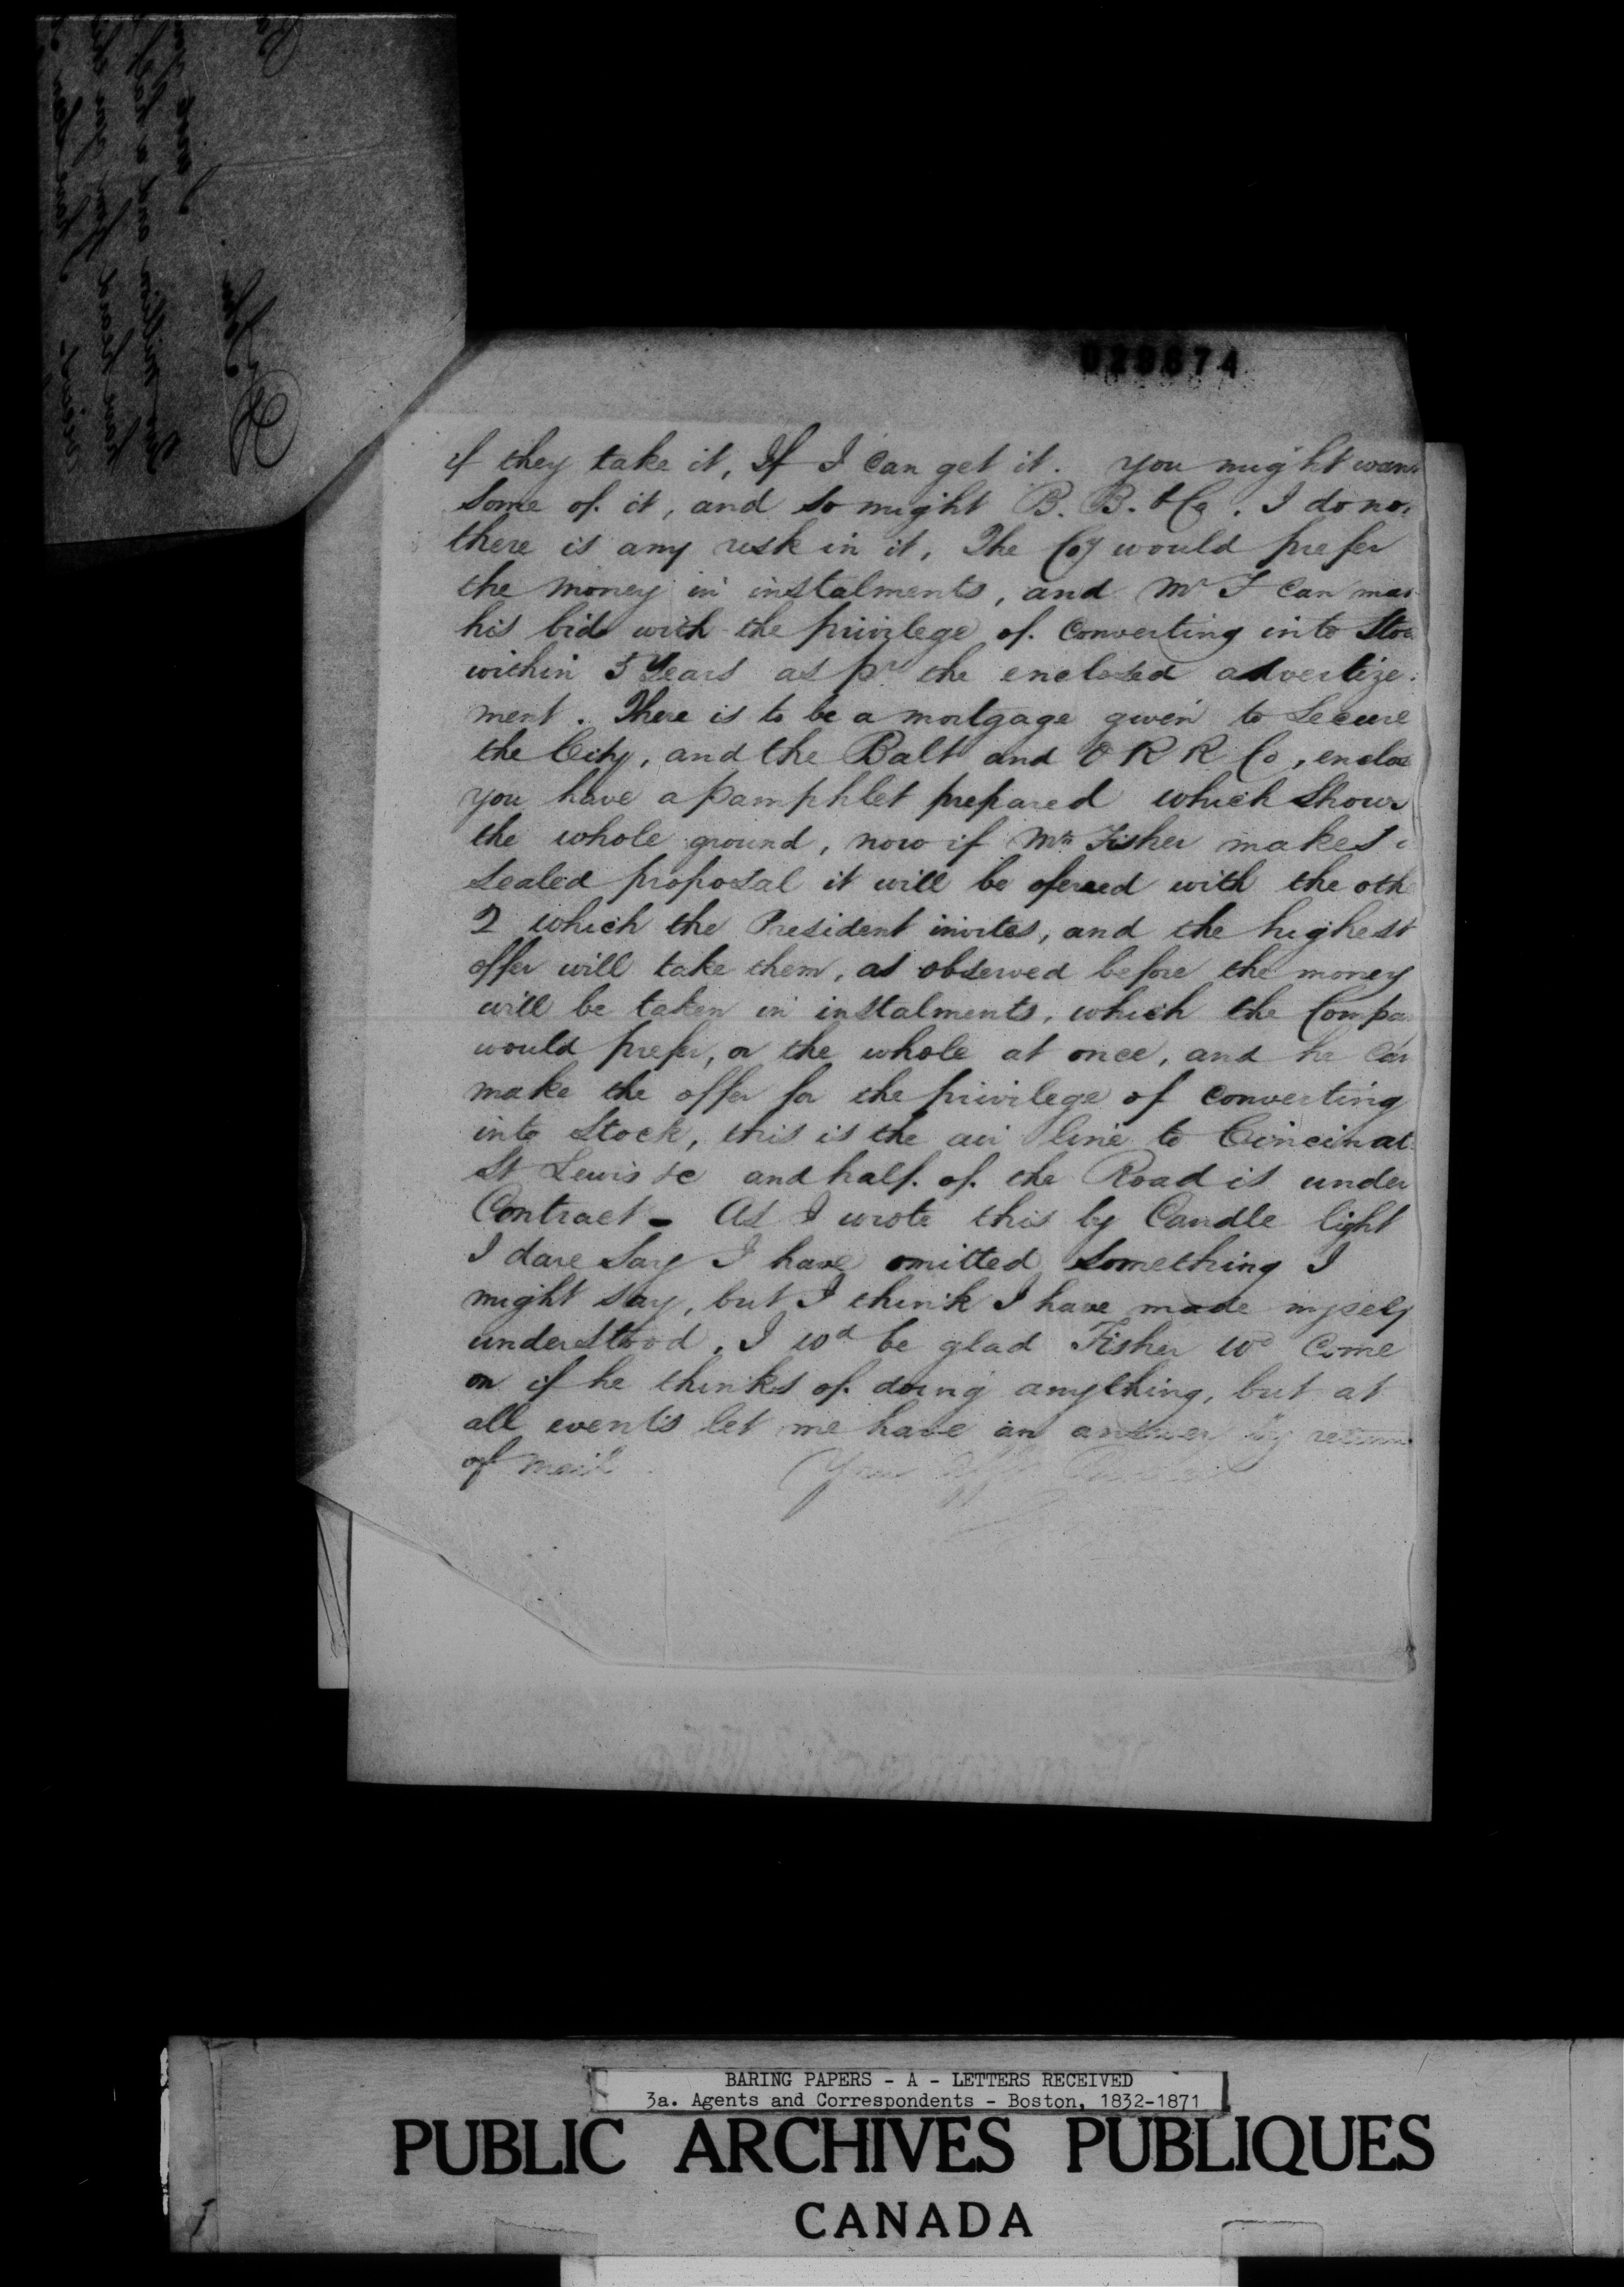 028674
if they take it, If I can get it. You might
some of it, and so might B. B. & Co. I do
there is any risk in it, The Coy would prefer
the money in instalments, and Mr F can
his bid with the privilege of converting into
within 5 Years as pr the enclosed advertize-
ment. There is to be a mortgage given to secure
the City, and the Balt and O R R Co,
you have a pamphlet prepared which shows
the whole ground, now if Mr Fisher makes
sealed proposal it will be with the
2 which the President invites, and the highest
offer will take them, as observed before the money
will be taken in instalments, which the Compa
would prefer, or the whole at once, and he can
make the offer for the privilege of converting
into Stock, this is the air line to Cincinat
St Lewis &c and half of the Road is under
Contract - As I wrote this by Candle light
I dare say I have omitted something I
might say, but I think I have made myself
understood. I wd be glad Fisher wd come
on if he thinks of doing anything, but at
all events let me have an answer by return
of mail
BARING PAPERS - A - LETTERS RECEIVED
3a. Agents and Correspondents - Boston, 1832-1871
PUBLIC ARCHIVES PUBLIQUES
CANADA